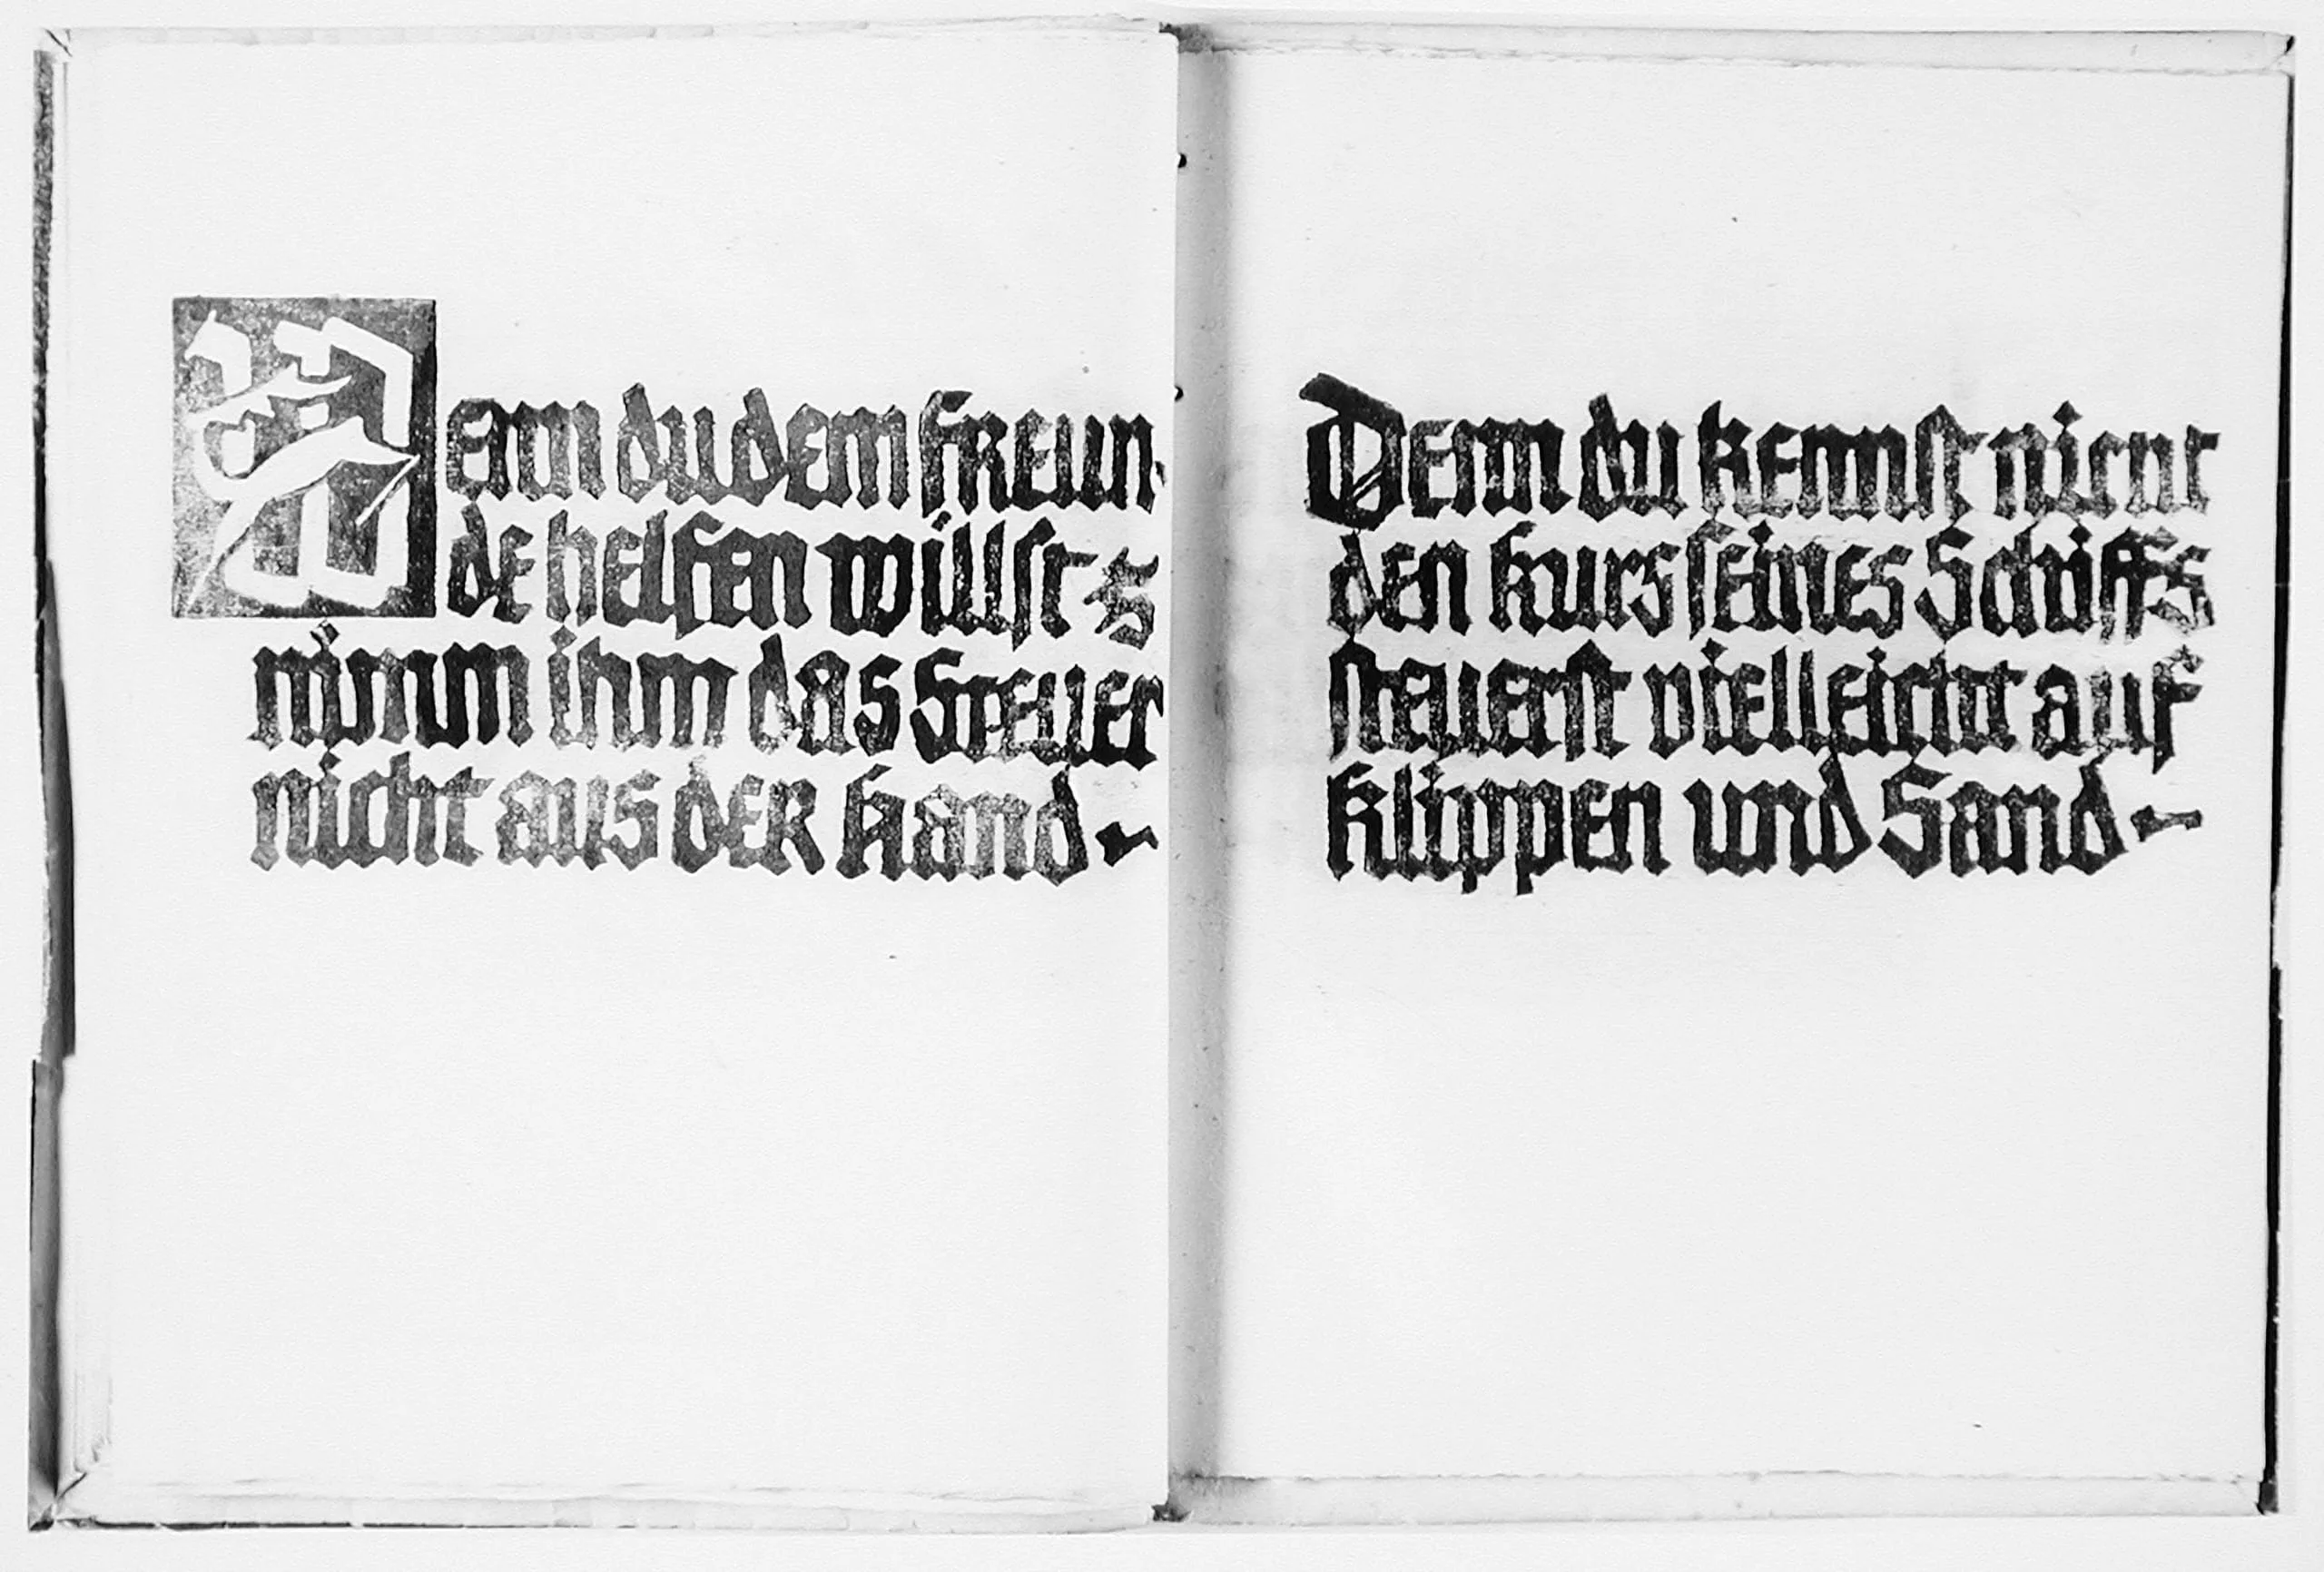 Wenn du dem Freun-
de helfen willst
nimm ihm das Steuer
nicht aus der Hand
Denn du kennst nicht
den Kurs seines Schiffs
steuerst vielleicht auf
Klippen und Sand